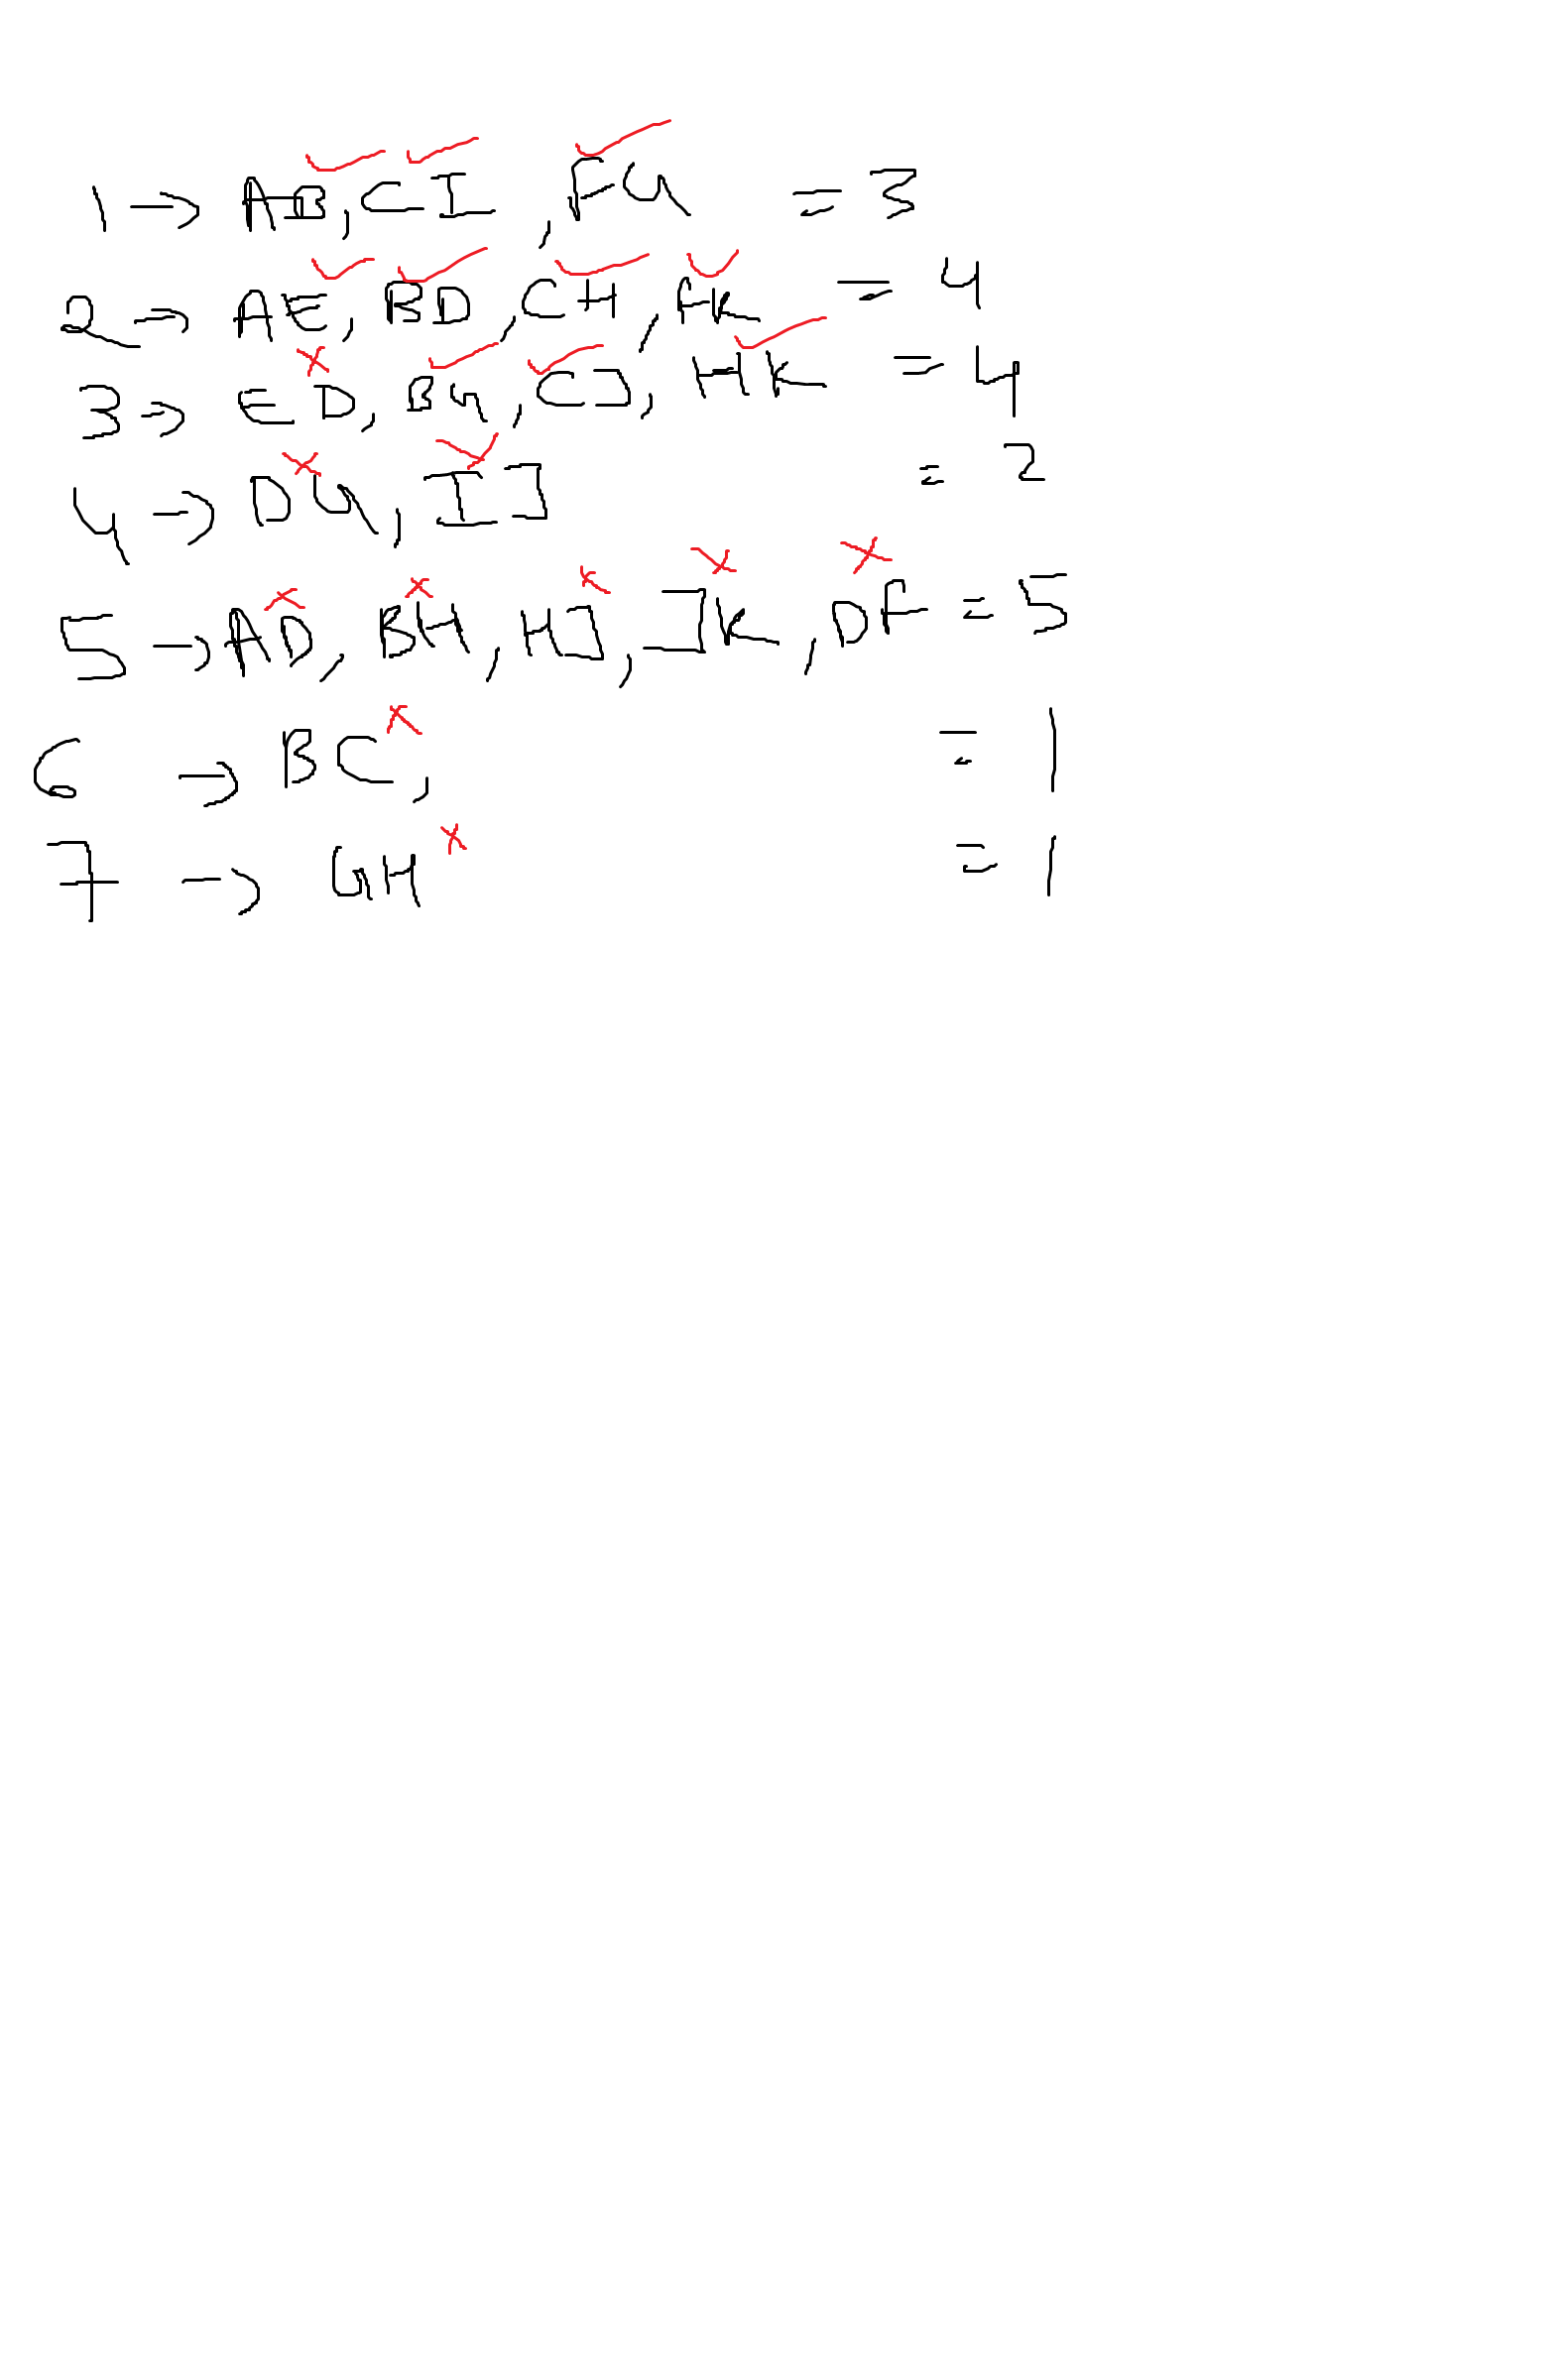 1 → AB, CI, FG = 3
2 → AE, BD, CH, FK = 4
3 → ED, BG, CJ, HK = 4
4 → DG, IJ = 2
5 → AD, BH, HJ, JK, DF = 5
6 → BC, = 1
7 → GH = 1